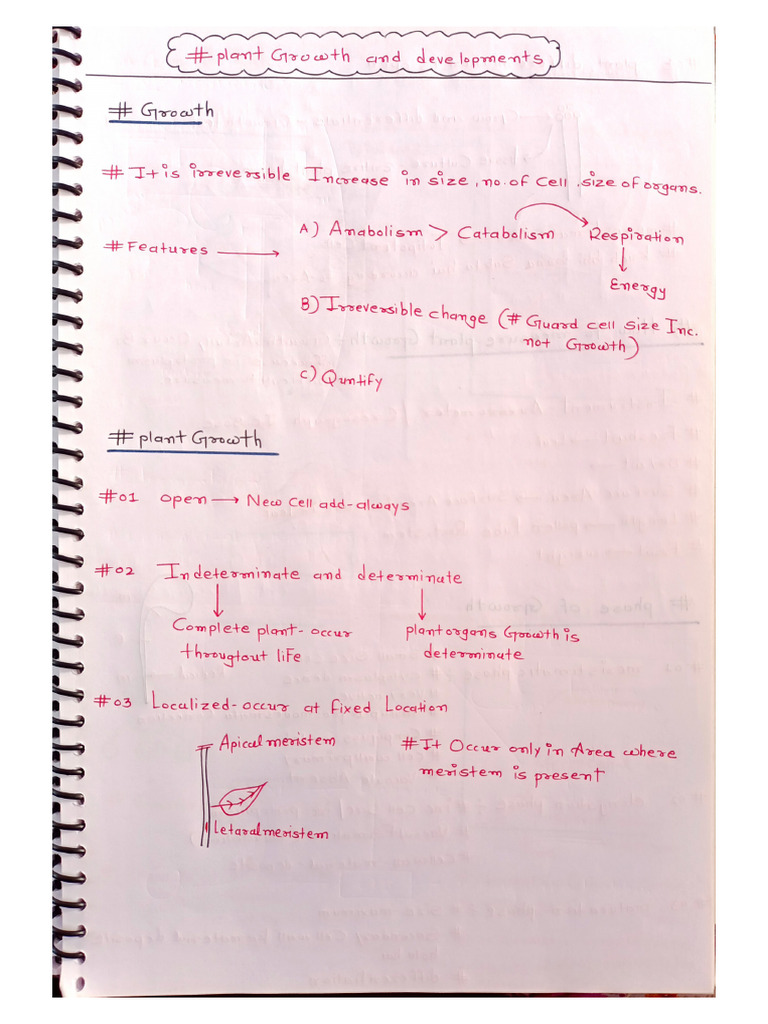 # plant Growth and developments
# Growth
# It is irreversible Increase in size, no. of cell, size of organs.
# Features → A) Anabolism > Catabolism Respiration
Energy
B) Irreversible change (# Guard cell size Inc.
not Growth)
C) Quntify
# plant Growth
#01 open → New cell add-always
#02 Indeterminate and determinate
Complete plant- occur
throughtout life
plant organs Growth is
determinate
#03 Localized-occur at fixed Location
Apical meristem
Letaral meristem
# It Occur only in Area where
meristem is present